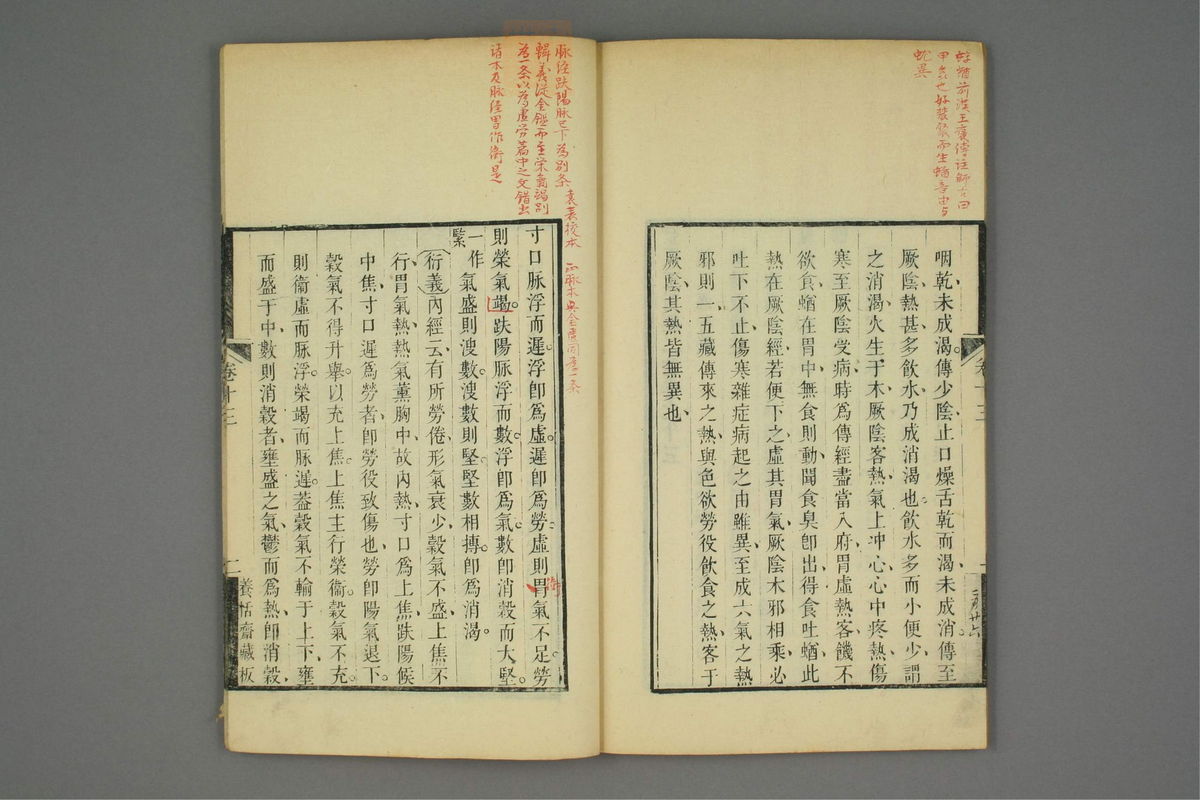 蝤前漢
咽乾未成渴傳少陰止口燥舌乾而渴未成消傳至
厥陰熱甚多飲水乃成消渴也飲水多而小便少謂
之消渴火生于木厥陰客熱氣上冲心心中疼熱傷
寒至厥陰受病時爲傳經盡當入府胃虛熱客饑不
欲食蛕在胃中無食則動聞食臭卽出得食吐蛕此
熱在厥陰經若便下之虛其胃氣厥陰木邪相乘必
吐下不止傷寒雜症病起之由雖異至成六氣之熱
邪則一五藏傳來之熱與色欲勞役飲食之熱客于
厥陰其熱皆無異也
卷十三
脉經趺陽脉已下為別条
輯義從金鑑而至榮氣竭別
為一条以為虛勞篇中之文錯出
諸本及脉經胃作衛是
寸口脉浮而遲浮卽爲虛遲卽爲勞虛則胃氣不足勞
則榮氣竭趺陽脉浮而數浮卽爲氣數卽消穀而大堅
一作緊
氣盛則溲數溲數則堅堅數相搏卽爲消渴
衍義內經云有所勞倦形氣衰少穀氣不盛上焦不
行胃氣熱熱氣薰胸中故內熱寸口爲上焦趺陽候
中焦寸口遲爲勞者卽勞役致傷也勞卽陽氣退下
穀氣不得升舉以充上焦上焦主行榮衞穀氣不充
則衞虛而脉浮榮竭而脉遲葢穀氣不輸于上下壅
而盛于中數則消穀者壅盛之氣鬱而爲熱卽消穀
卷十三
二
養恬齋藏板